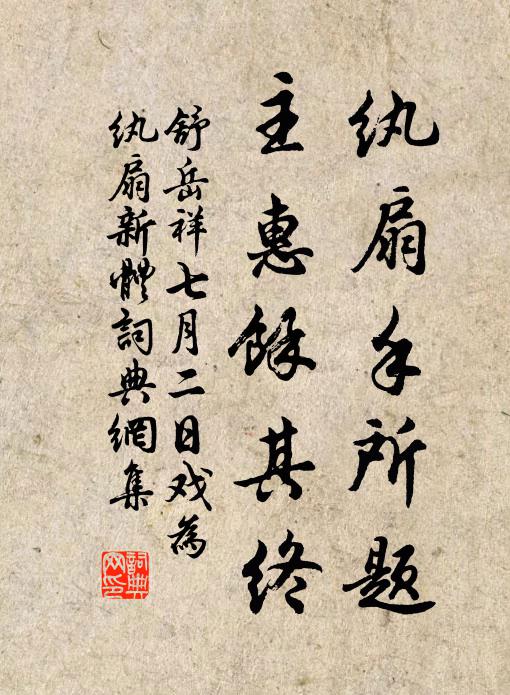 纨扇手所题
主惠餘其终
舒岳祥七月二日戏為
纨扇新體詞典網集
詞典網印